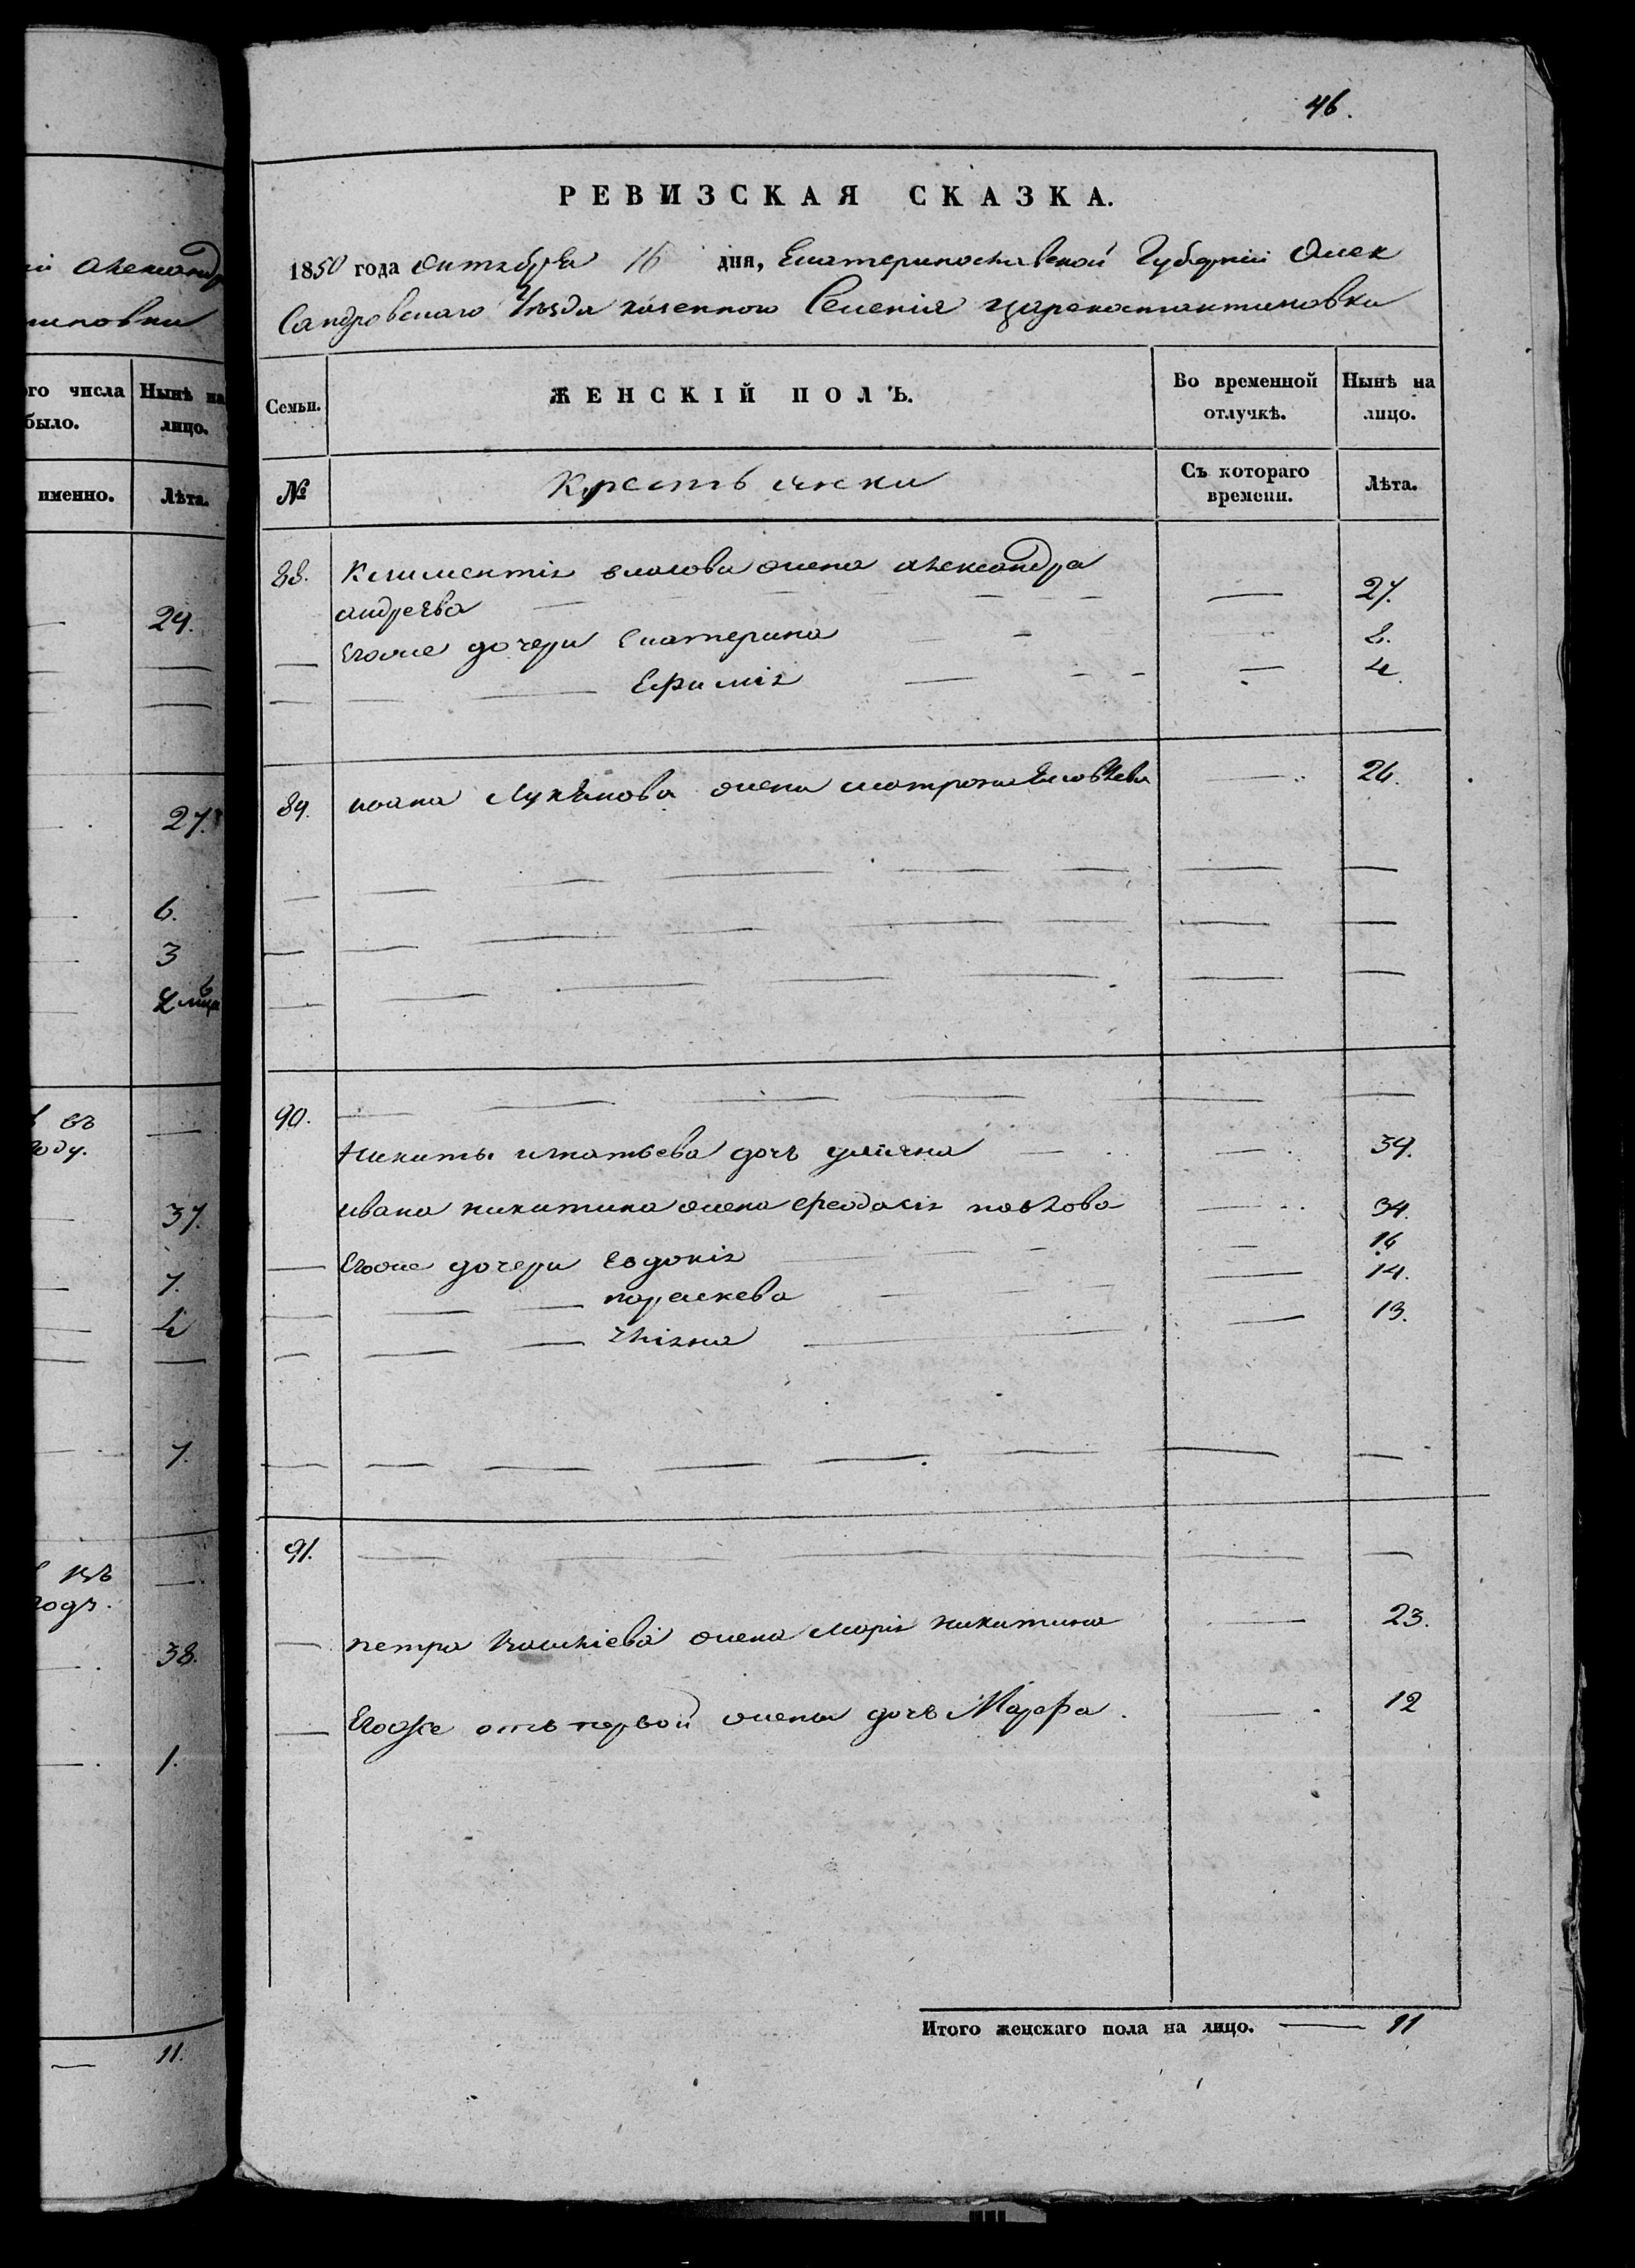 46.
РЕВИЗСКАЯ СКАЗКА.
1850 года Октября 16 дня, Екатеринославской Губерніи Алек
Сандровскаго Уѣзда казенного Селенія Цареконстантиновки
Семьи. ЖЕНСКІЙ ПОЛЪ. Во временной отлучкѣ. Нынѣ на лицо.
№ Крестьянки Съ котораго времени. Лѣта.
88. Климентія власова жена александра
андреѣва — 27.
— Егоже дочери Екатерина 8.
— Ефимія — 4.
89. ивана жена матрона — 26.
90. — — —
Никиты игнатьева дочь — 39.
ивана никитина жена феодосія павлова — 34.
— Егоже дочери Евдокія — 16
— параскева — 14.
— — 13.
91. — — —
— петра жена марія никитина — 23.
— Егоже отъ первой жены дочь Марфа. — 12
Итого женскаго пола на лицо. — 11
александ
иновки
ого числа было. Нынѣ на лицо.
именно. Лѣта.
29.
27.
6.
3
въ
году.
37.
7.
4
7.
38.
1.
— 11.